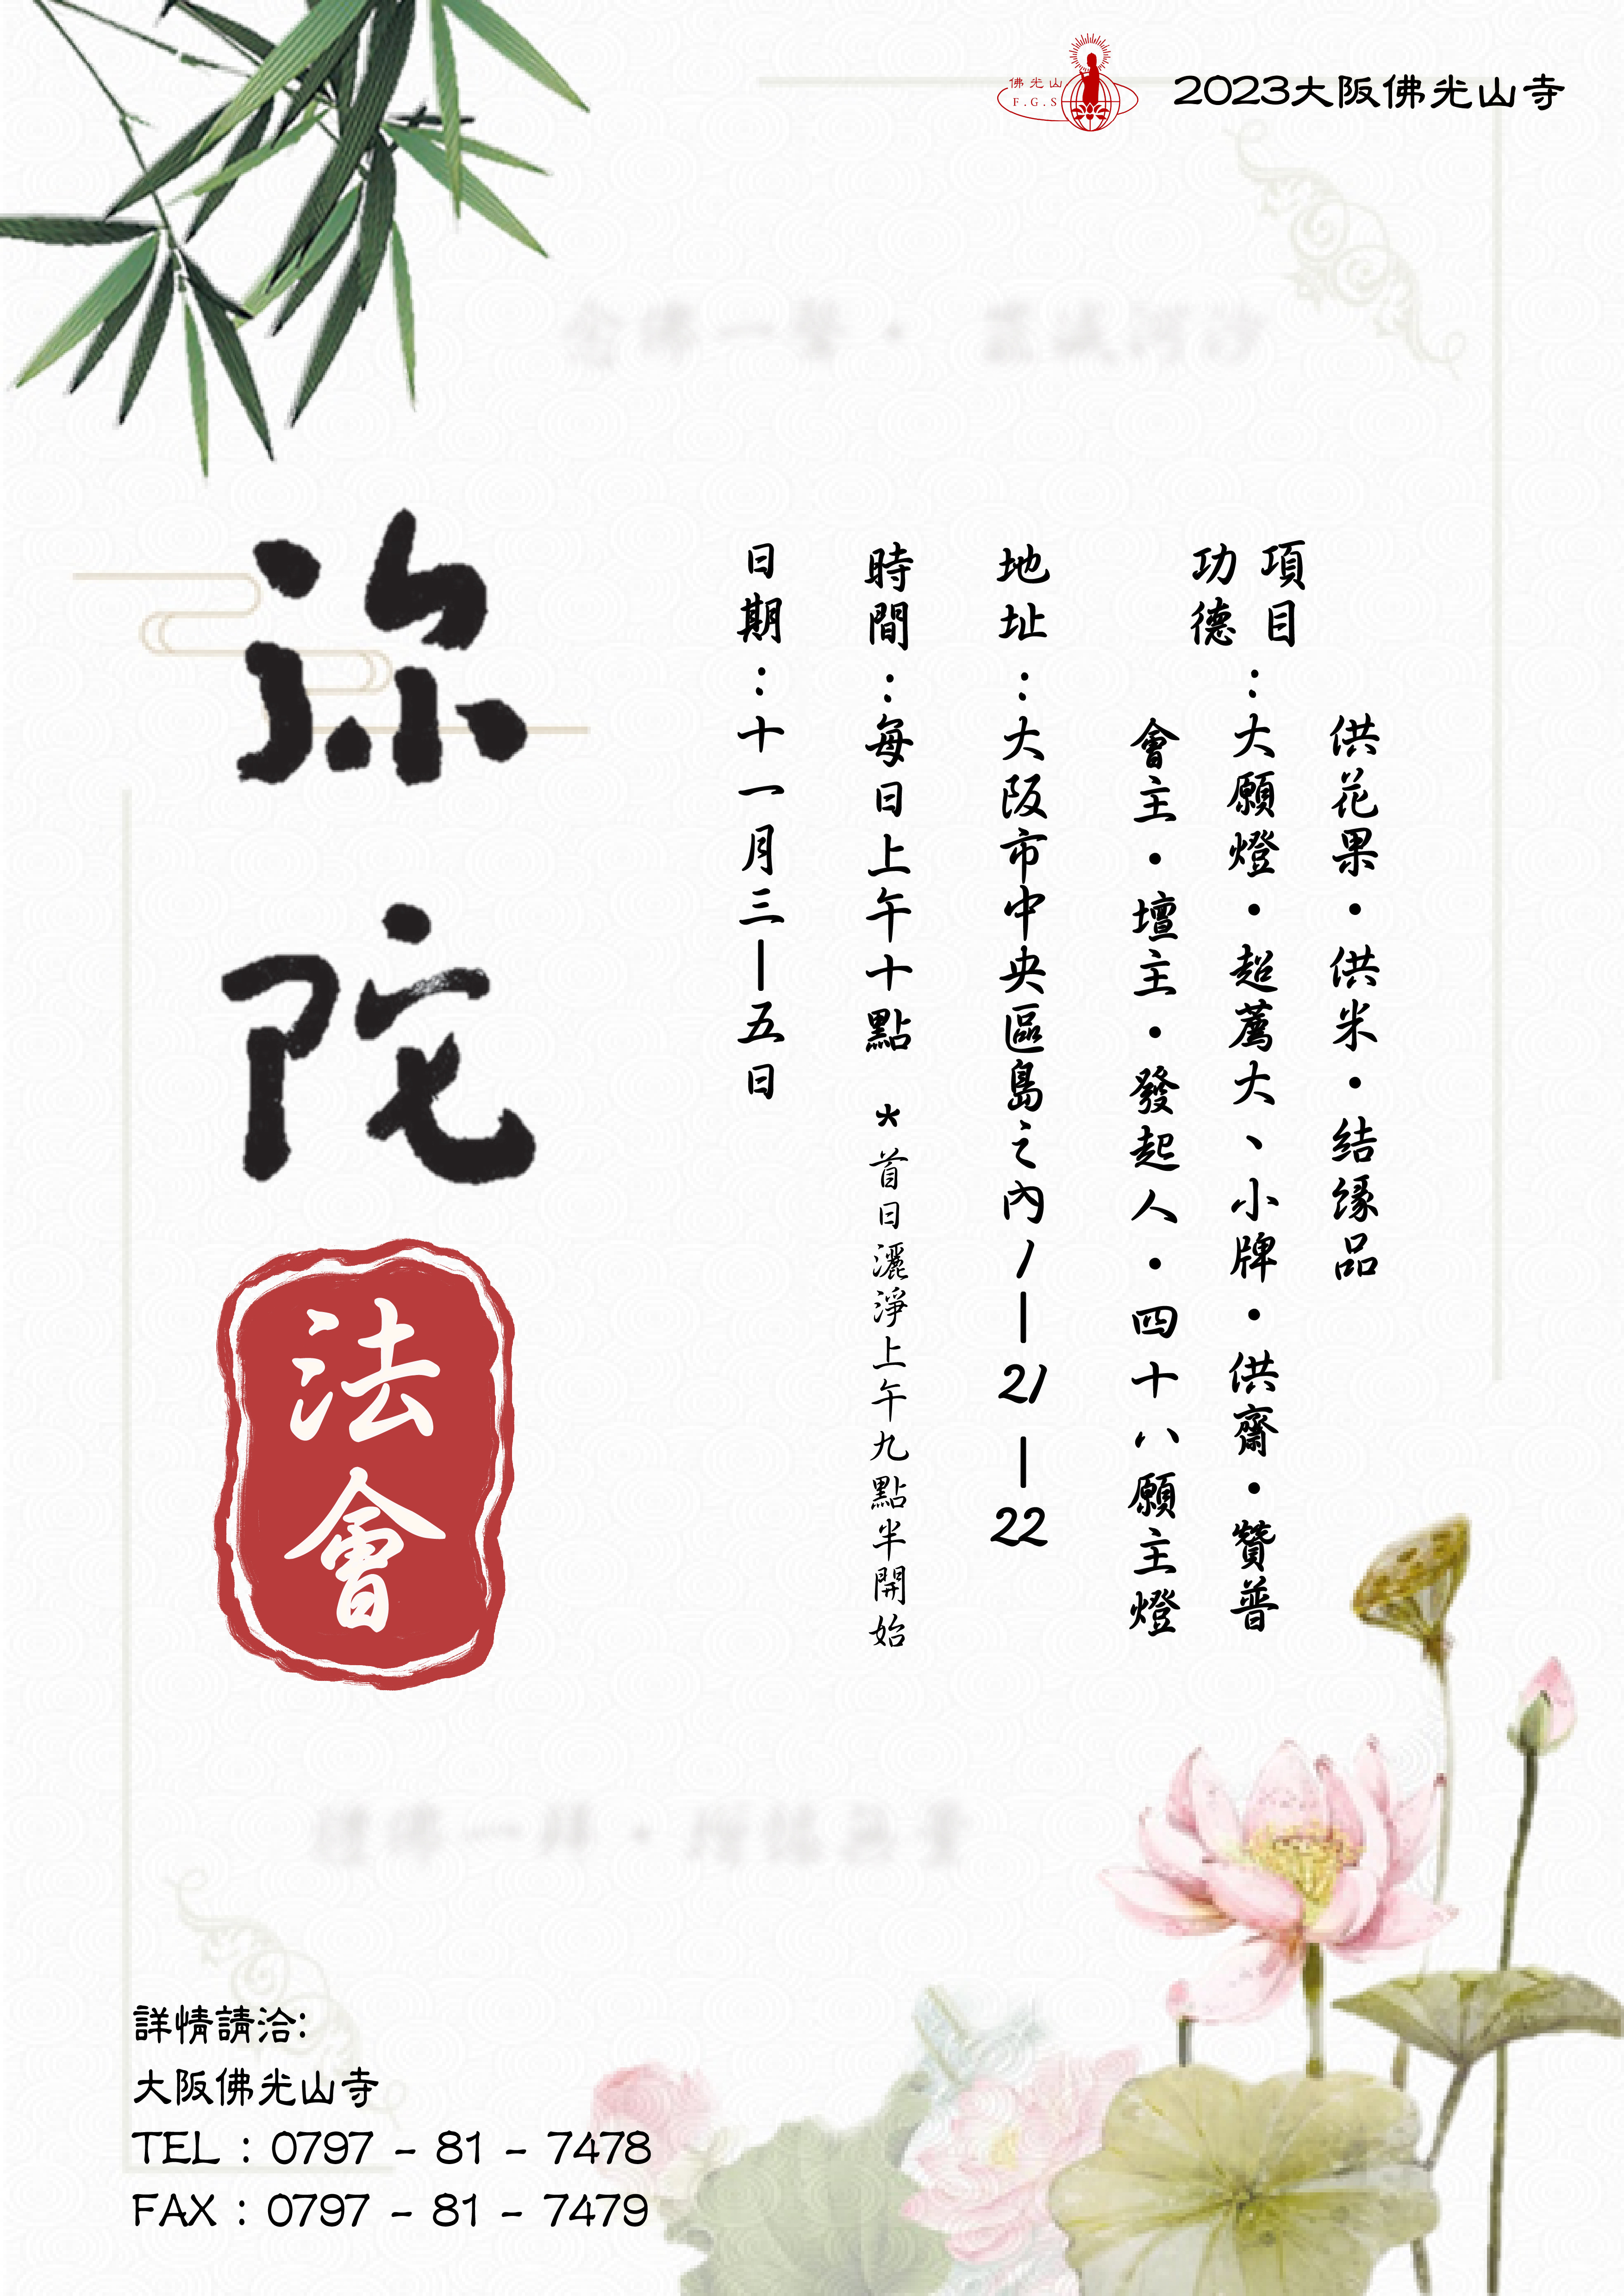 佛光山
F.G.S
2023大阪佛光山寺
弥陀
法會
日期：十一月三—五日
時間：每日上午十點 *首日灑淨上午九點半開始
地址：大阪市中央區島之內1—21—22
功德項目：
會主・壇主・發起人・四十八願主燈
大願燈・超薦大、小牌・供齋・贊普
供花果・供米・结缘品
詳情請洽:
大阪佛光山寺
TEL : 0797 - 81 - 7478
FAX : 0797 - 81 - 7479